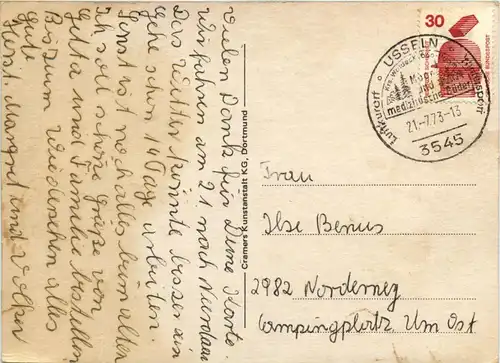 Vielen Dank für Deine Karte.
Wir fahren am 21. nach
Das Wetter könnte besser sein
Gehe schon 14 Tage arbeiten.
Sonst ist noch alles beim alten
Ich soll schöne Grüße von
und Familie bestellen
Bis zum Wiedersehn alles
Gute
Horst, Margret und Volker
Cramers Kunstanstalt KG, Dortmund
30
DEUTSCHE BUNDESPOST
USSELN
Luftkurort
Wintersport
Moor
und
medizinische Bäder
21.-7.73-13
3545
Frau
Ilse Benus
2982 Norderney
Campingplatz Um Ost